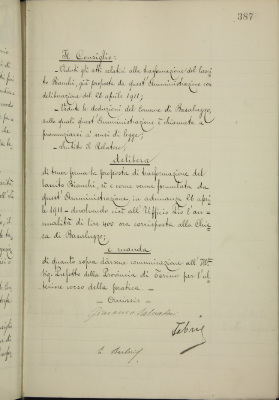 387
Il Consiglio:
- Veduti gli atti relativi alla trasformazione del lasci-
to Bianchi, già proposta da quest'Amministrazione con
deliberazione del 28 aprile 1911;
- Vedute le deduzioni del Comune di Basaluzzo,
sulle quali quest'Amministrazione è chiamata a
pronunziarsi a' sensi di legge;
- Sentito il Relatore;
delibera
di tener ferma la proposta di trasformazione del
lascito Bianchi, sì e come venne formulata da
quest'Amministrazione, in adunanza 28 apri-
le 1911 - devolvendo cioè all'Ufficio Pio l'an-
nualità di lire 400 ora corrisposta alla Chie-
sa di Basaluzzo;
e manda
di quanto sopra darsene comunicazione all'Ill.mo
Sig. Prefetto della Provincia di Torino per l'ul-
teriore corso della pratica -